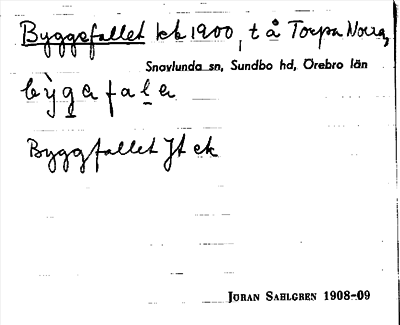 Byggefallet ek 1900, t å Torpa Norra,
Snavlunda sn, Sundbo hd, Örebro län
bỳgafala
Byggfallet Jt ek
JÖRAN SAHLGREN 1908-09